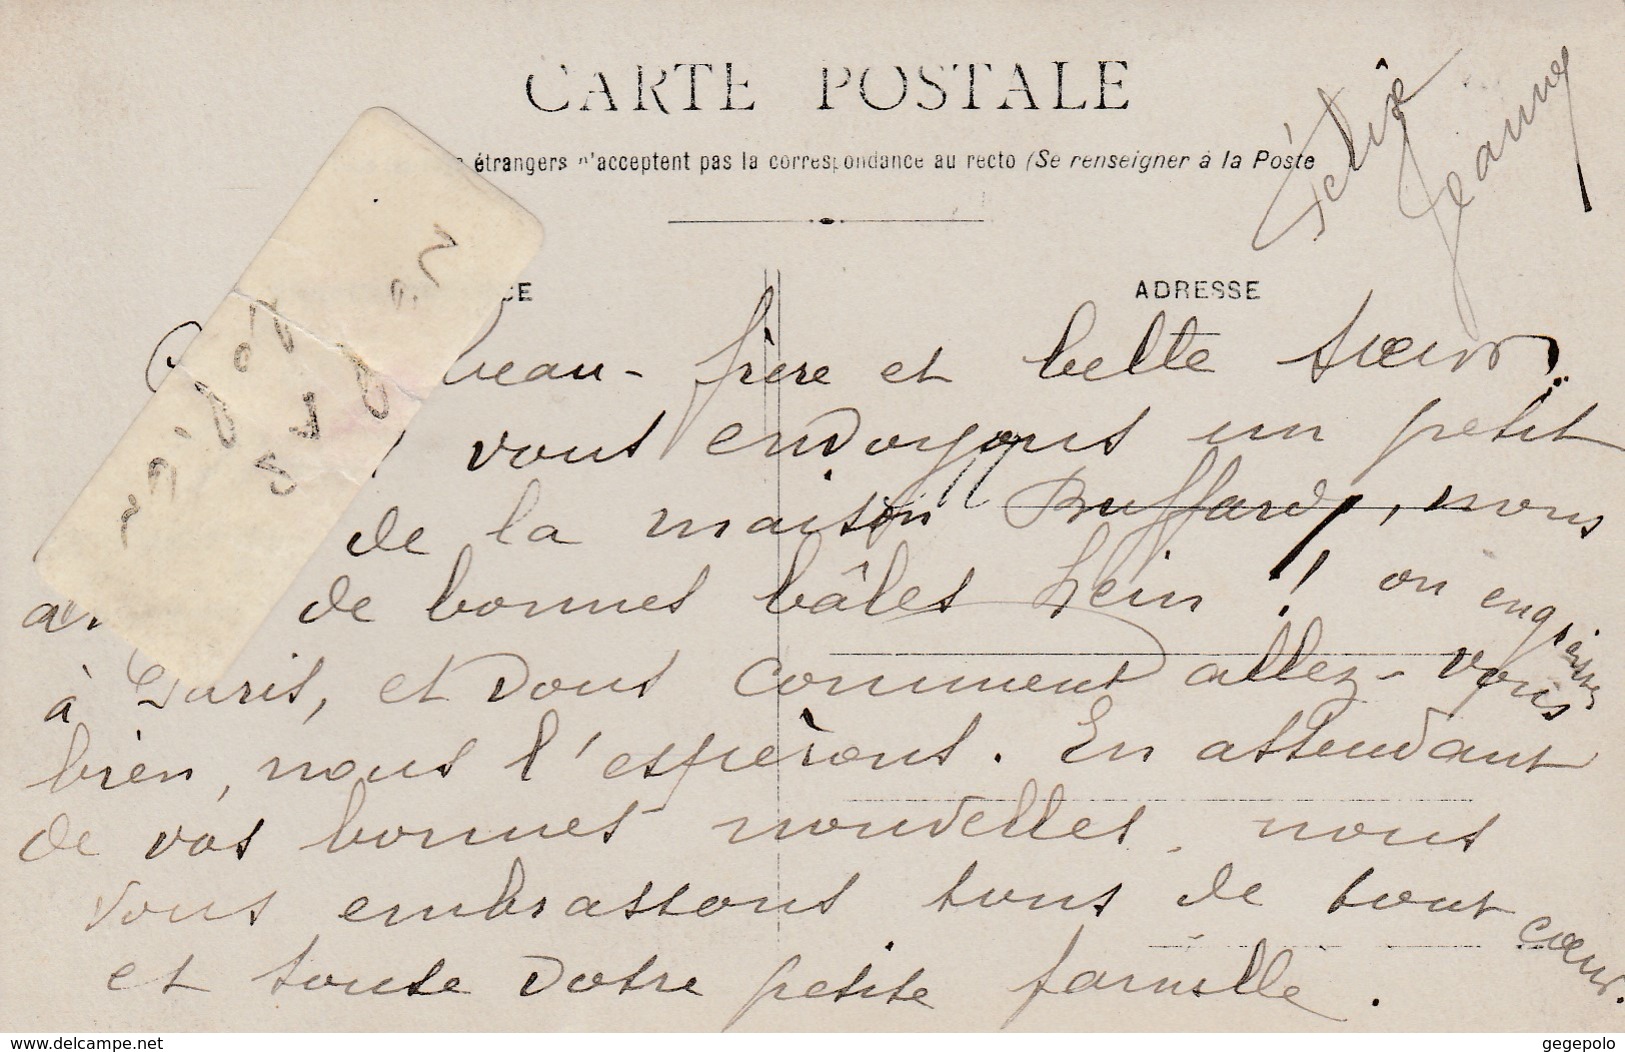 CARTE POSTALE
étrangers n'acceptent pas la correspondance au recto (Se renseigner à la Poste
Félix
Jeanne
CE
ADRESSE
beau-frère et belle sœur.
vous envoyons un petit
de la maison Buffard, nous
de bonnes bâles hein ! on engraisse
à Paris, et vous comment allez-vous
bien, nous l'espèrons. En attendant
de vos bonnes nouvelles, nous
vous embrassons tous de tout cœur.
et toute votre petite famille.
www.delcampe.net
gegepolo